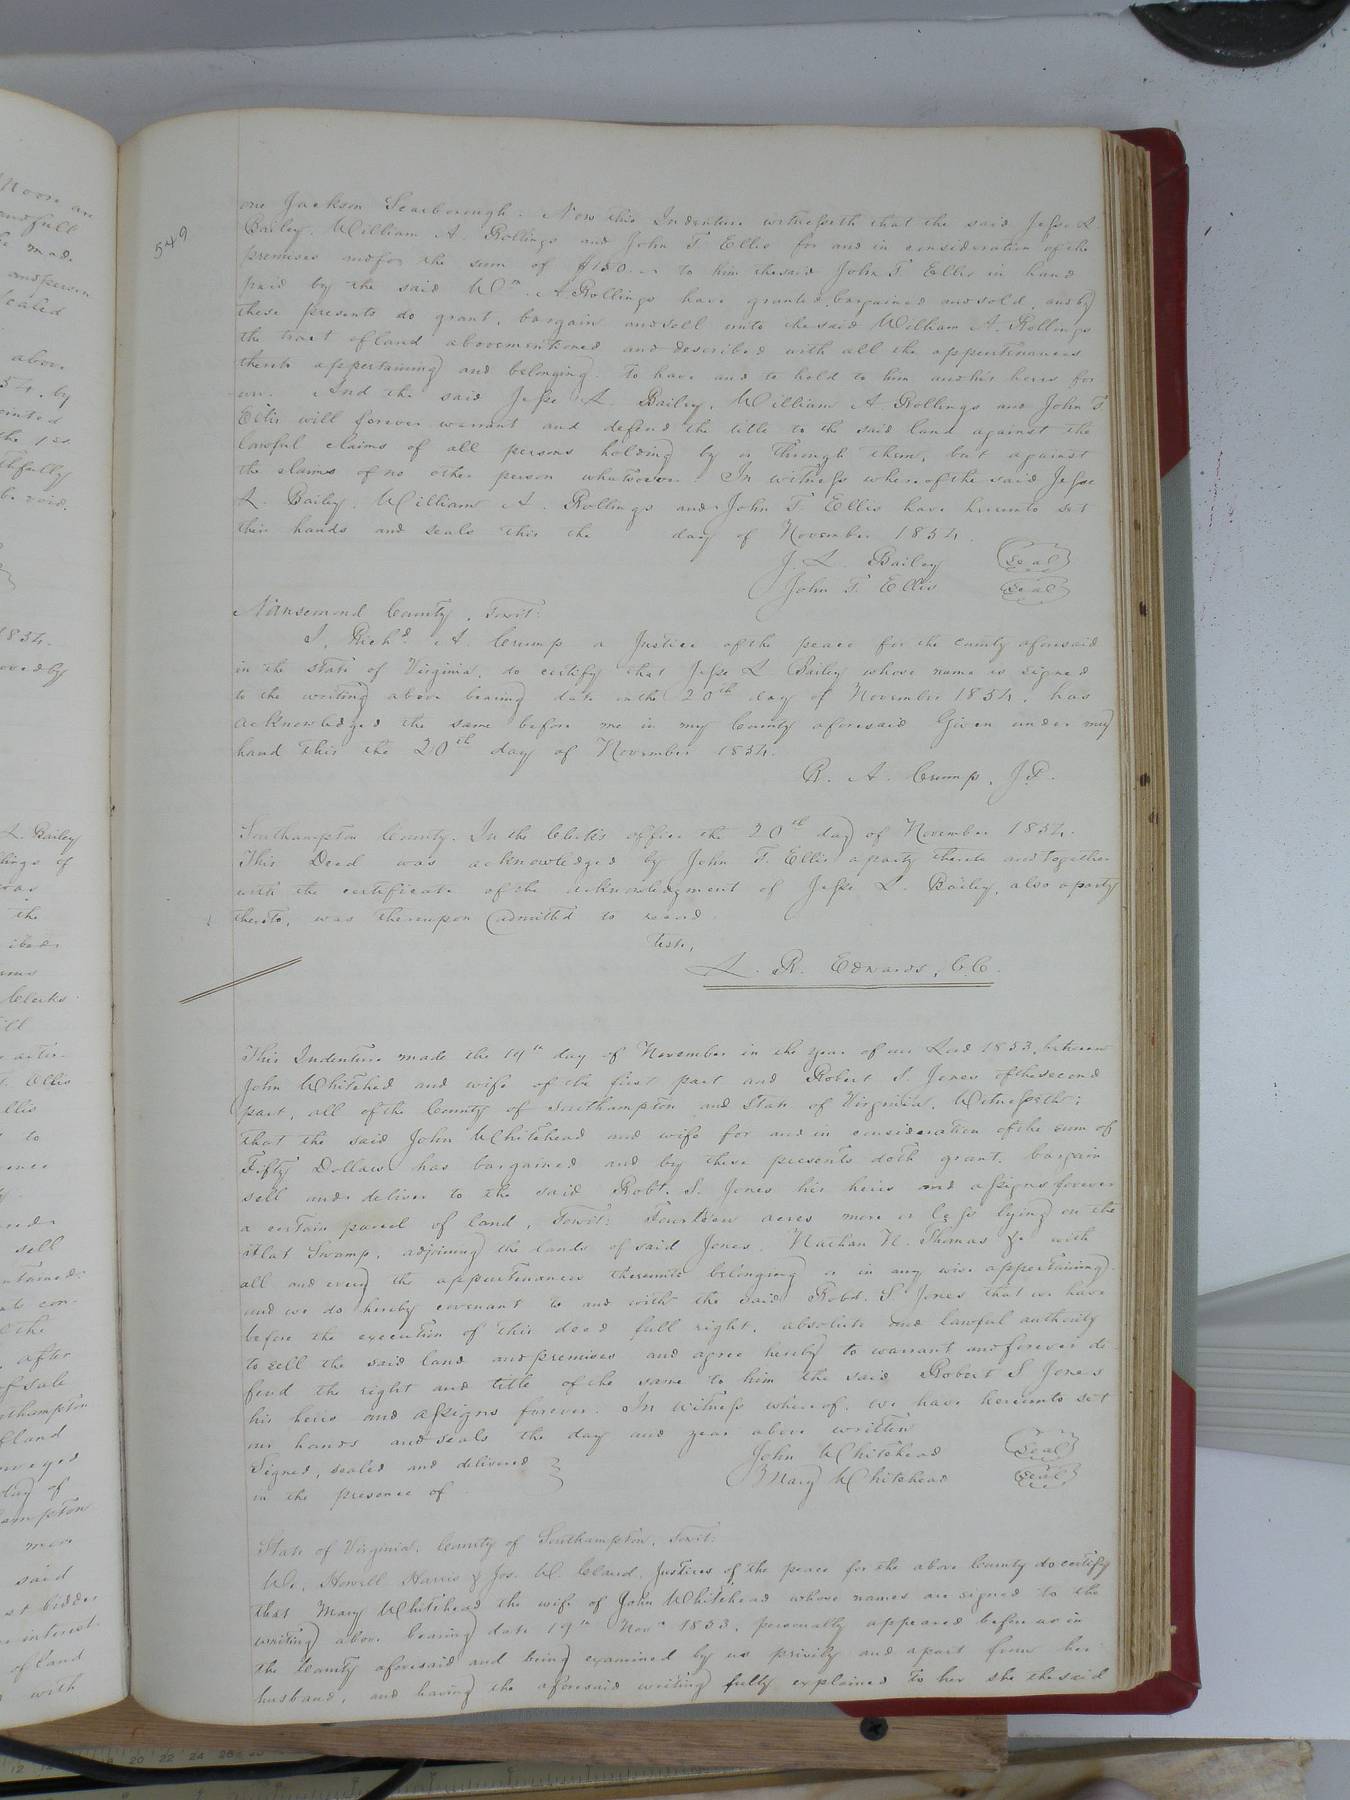 549
one Jackson Scarborough. Now this Indenture witnesseth that the said Jesse L.
Bailey, William A. Rollings and John T. Ellis for and in consideration of the
premises and for the sum of $150. to him the said John T. Ellis in hand
paid by the said Wm. A Rollings have granted, bargained and sold, and by
these presents do grant, bargain and sell unto the said William A. Rollings
the tract of land abovementioned and described with all the appurtenances
thereto appertaining and belonging. To have and to hold to him and his heirs for
ever. And the said Jesse L. Bailey, William A. Rollings and John T
Ellis will forever warrant and defend the title to the said land against the
lawful claims of all persons holding by or through them, but against
the claims of no other person whatsoever. In witness whereof the said Jesse
L. Bailey, William A. Rollings and John T. Ellis have hereunto set
their hands and seals this the day of November 1854.
J. L. Bailey (Seal)
John T. Ellis (Seal)
Nansemond County, Towit:
I, Richd. A. Crump a Justice of the peace for the county aforesaid
in the State of Virginia, do certify that Jesse L. Bailey whose name is signed
to the writing above bearing date on the 20th day of November 1854, has
acknowledged the same before me in my County aforesaid Given under my
hand this the 20th day of November 1854.
R. A. Crump, J.P.
Southampton County. In the Clerk's office the 20th day of November 1854.
This Deed was acknowledged by John T. Ellis a party thereto and together
with the certificate of the acknowledgment of Jesse L. Bailey, also a party
thereto, was thereupon admitted to record.
Teste,
L. R. Edwards, C.C.
This Indenture made the 19th day of November in the year of our Lord 1853, between
John Whitehed and wife of the first part and Robert S. Jones of the second
part, all of the County of Southampton and State of Virginia, Witnesseth:
that the said John Whitehead and wife for and in consideration of the sum of
Fifty Dollars has bargained and by these presents doth grant, bargain
sell and deliver to the said Robt. S. Jones his heirs and assigns forever
a certain parcel of land, Towit: Fourteen acres more or less lying on the
Flat Swamp, adjoining the lands of said Jones, Nathan N. Thomas &c with
all and every the appurtenances thereunto belonging or in any wise appertaining.
and we do hereby covenant to and with the said Robt. S. Jones that we have
before the execution of this deed full right, absolute and lawful authority
to sell the said land and premises and agree hereby to warrant and forever de-
fend the right and title of the same to him the said Robert S Jones
his heirs and assigns forever. In witness whereof, we have hereunto set
our hands and seals the day and year above written
Signed, sealed and delivered } John Whitehead (Seal)
in the presence of } Mary Whitehead (Seal)
State of Virginia, County of Southampton, Towit:
We, Howell Harris & Jos. W. Claud, Justices of the peace for the above County do certify
that Mary Whitehead the wife of John Whitehead whose names are signed to the
writing above bearing date 19th Novr 1853, personally appeared before us in
the County aforesaid and being examined by us privily and apart from her
husband, and having the aforesaid writing fully explained to her she the said